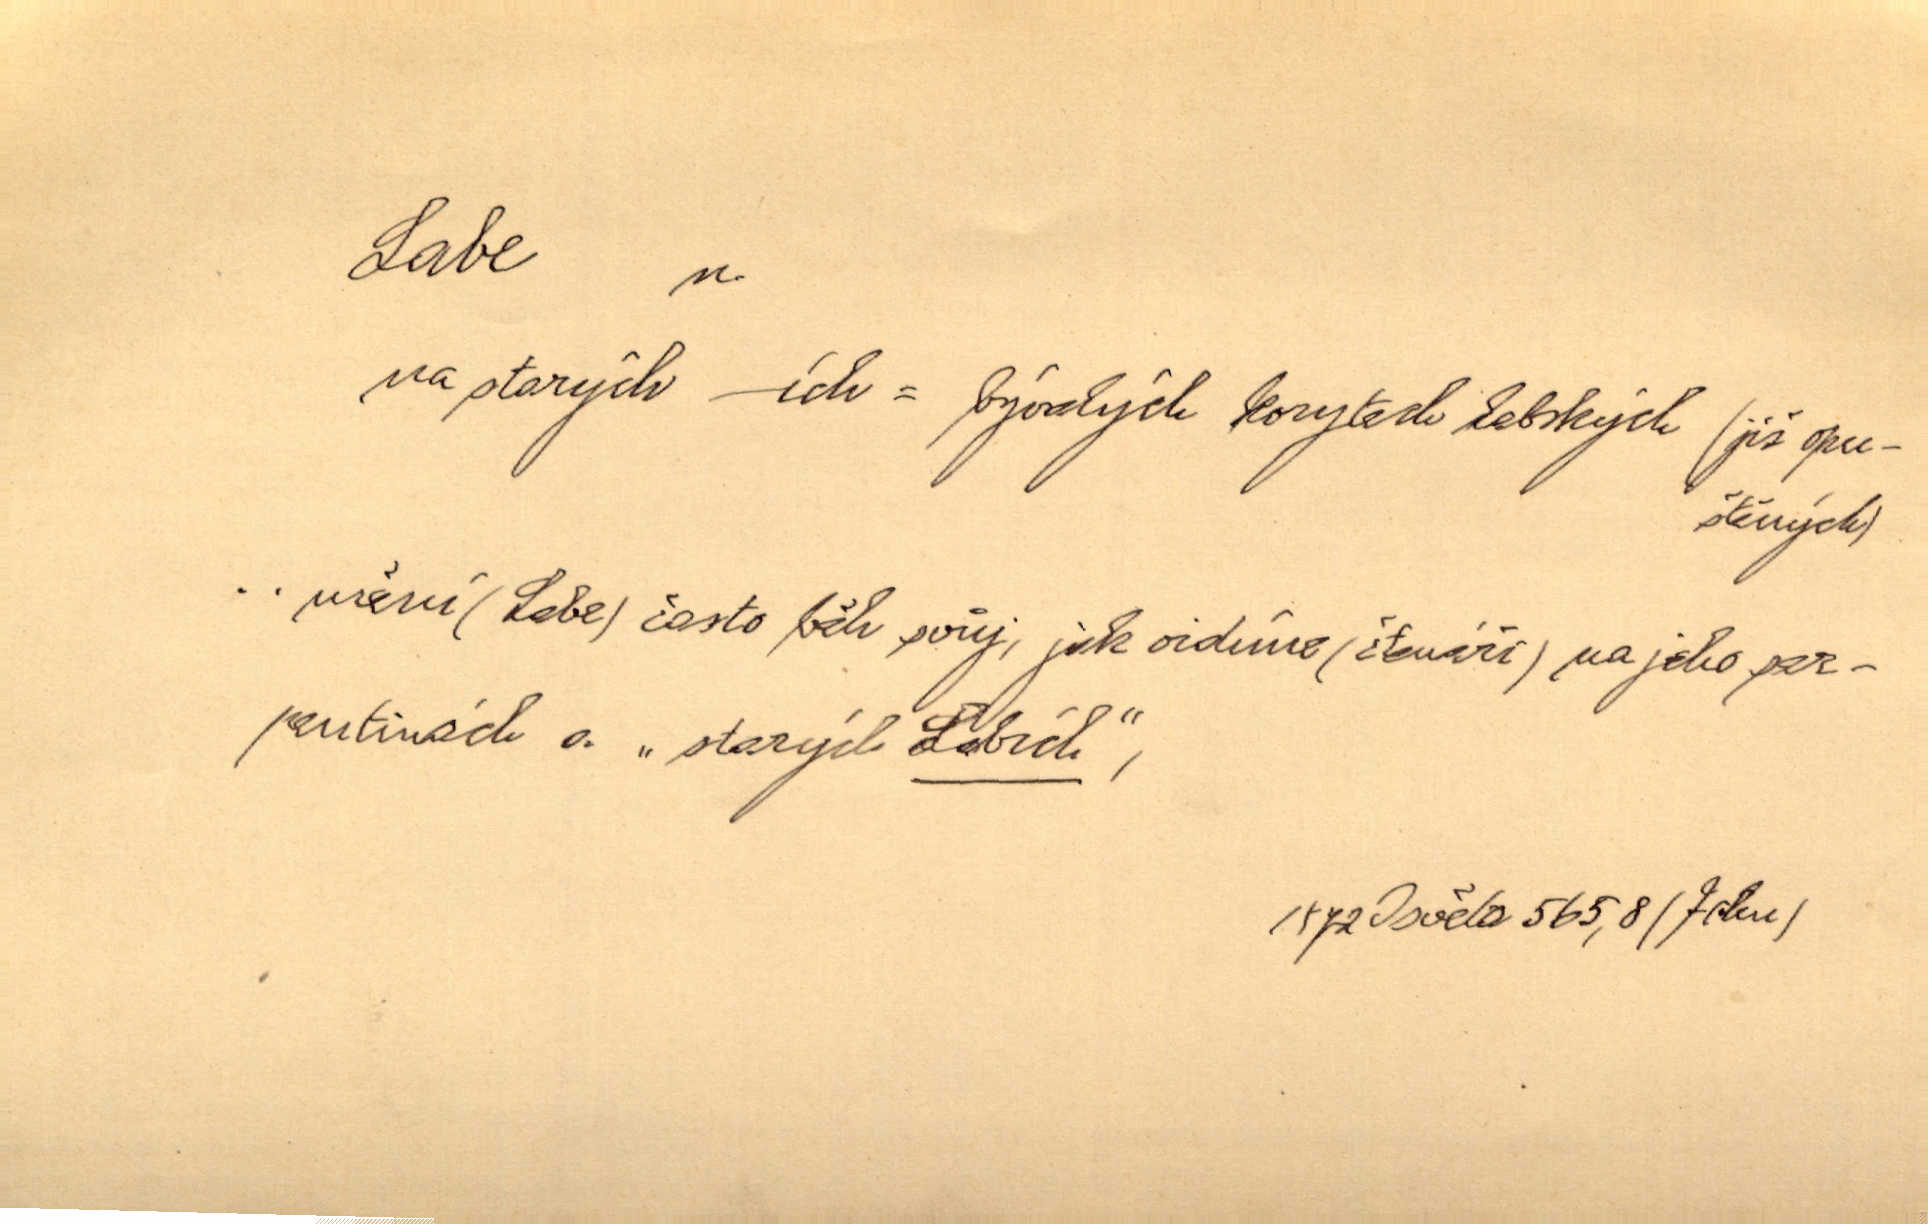 Labe n.
na starých –ích = bývalých korytech labských (již opu-
štěných)
.. mění (Labe) často běh svůj, jak vidíme (čtenáři) na jeho ser-
pentinách a „starých Labích“,
1872 Osvěta 565,8 (Jahn)